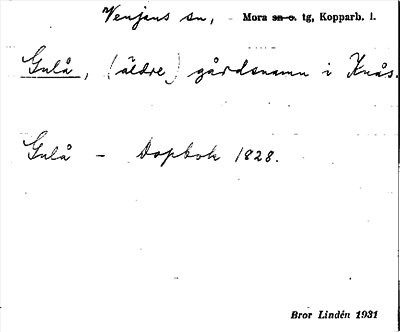 Venjans sn, - Mora sn o. tg, Kopparb. l.
Gulå, (äldre) gårdsnamn i Knås.
Gulå - Dopbok 1828.
Bror Lindén 1931